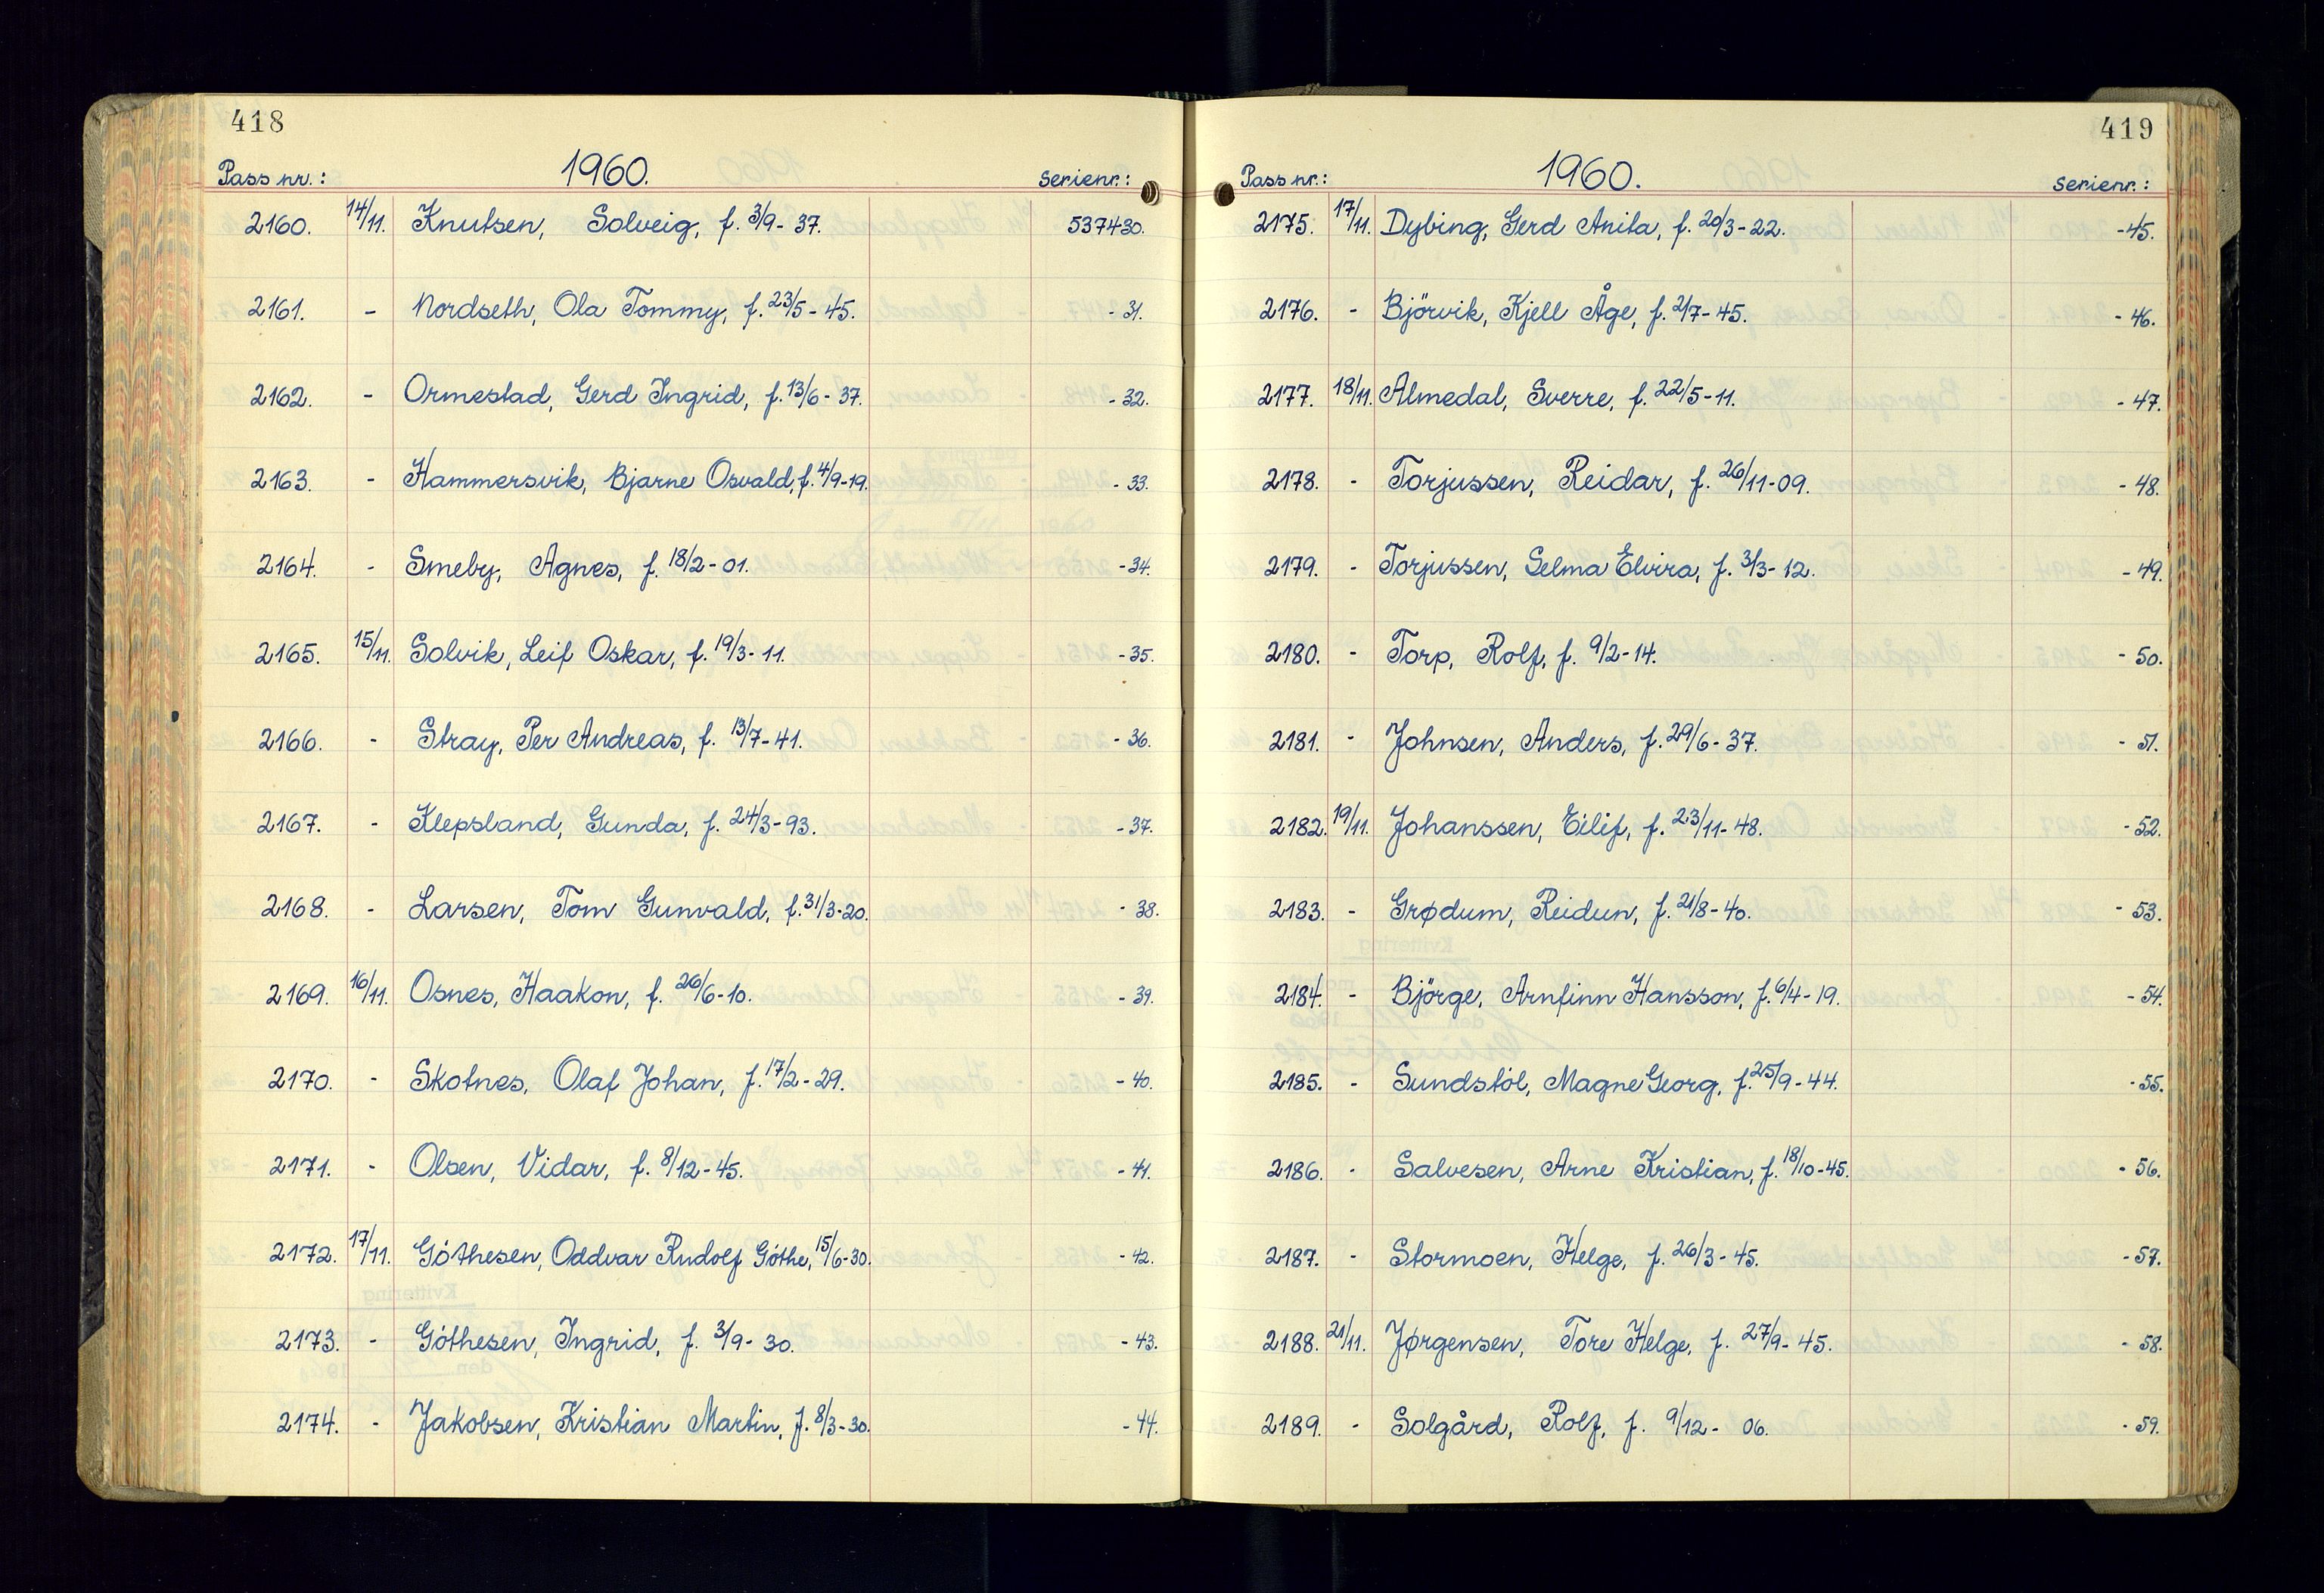 418
1960.
Pass nr.: Serienr.:
2160. 14/11. Knutsen, Solveig, f. 3/9-37. 537430.
2161. - Nordseth, Ola Tommy, f. 23/5-45. -31.
2162. - Ormestad, Gerd Ingrid, f. 13/6-37. -32.
2163. - Hammersvik, Bjarne Osvald, f. 4/9-19. -33.
2164. - Smeby, Agnes, f. 18/2-01. -34.
2165. 15/11. Solvik, Leif Oskar, f. 19/3-11. -35.
2166. - Stray, Per Andreas, f. 13/7-41. -36.
2167. - Klepsland, Gunda, f. 24/3-93. -37.
2168. - Larsen, Tom Gunvald, f. 31/3-20. -38.
2169. 16/11. Osnes, Haakon, f. 26/6-10. -39.
2170. - Skotnes, Olaf Johan, f. 17/2-29. -40.
2171. - Olsen, Vidar, f. 8/12-45. -41.
2172. 17/11. Göthesen, Oddvar Rudolf Göthe, 15/6-30. -42.
2173. - Göthesen, Ingrid, f. 3/9-30. -43.
2174. - Jakobsen, Kristian Martin, f. 8/3-30. -44.
419
1960.
Pass nr.: Serienr.:
2175. 17/11. Dybing, Gerd Anita, f. 20/3-22. -45.
2176. - Björvik, Kjell Åge, f. 2/7-45. -46.
2177. 18/11. Almedal, Sverre, f. 22/5-11. -47.
2178. - Torjussen, Reidar, f. 26/11-09. -48.
2179. - Torjussen, Selma Elvira, f. 3/3-12. -49.
2180. - Torp, Rolf, f. 9/2-14. -50.
2181. - Johnsen, Anders, f. 29/6-37. -51.
2182. 19/11. Johanssen, Eilif, f. 23/11-48. -52.
2183. - Grødum, Reidun, f. 21/8-40. -53.
2184. - Björge, Arnfinn Hansson, f. 6/4-19. -54.
2185. - Sundstöl, Magne Georg, f. 25/9-44. -55.
2186. - Salvesen, Arne Kristian, f. 18/10-45. -56.
2187. - Stormoen, Helge, f. 26/3-45. -57.
2188. 21/11. Jørgensen, Tore Helge, f. 27/9-45. -58.
2189. - Solgård, Rolf, f. 9/12-06. -59.